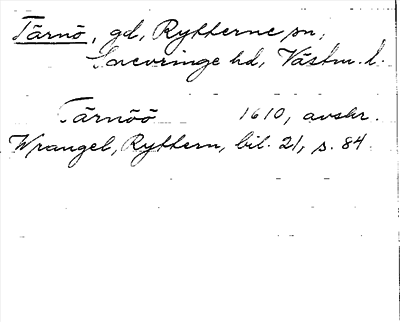 Tärnö, gd, Rytterne sn,
Snevringe hd, Västm. l.
Tärnöö 1610, avskr.
Wrangel, Ryttern, bil. 21, s. 84.